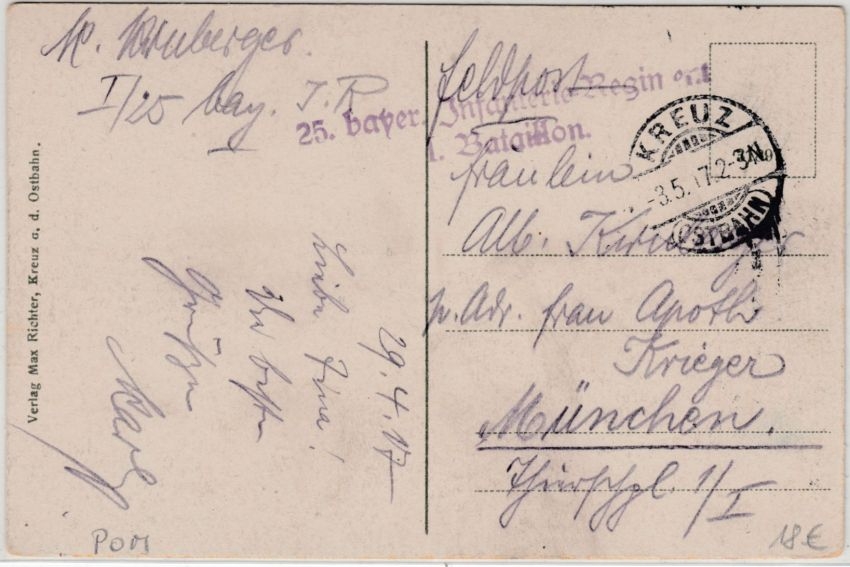 I/25 bay. I. R
25. bayer. Infanterie-Regiment
I. Bataillon.
Feldpost
KREUZ
-3.5.17.2-3N
(OSTBAHN)
Fräulein
Alb.
p. Adr. Frau Apoth
Krieger
München.
1/I
29.4.17
Liebe Fina!
Grüße
Karl
Verlag Max Richter, Kreuz a. d. Ostbahn.
18€